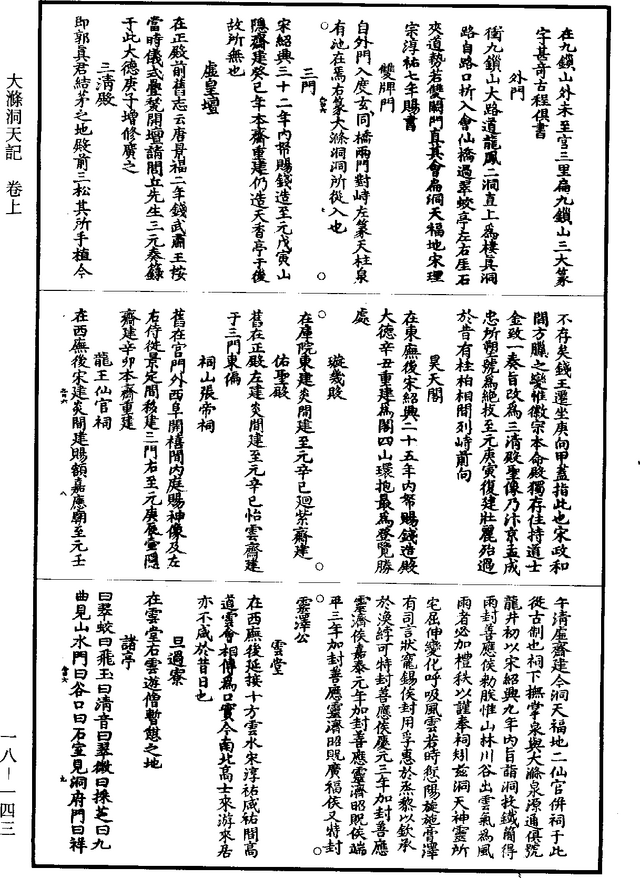 大滌洞天記　卷上
一八—一四三
在九鎖山外未至宮三里扁九鎖山三大篆
字甚奇古程俱書
外門
衝九鎖山大路道龍鳳二洞直上為棲真洞
路自路口折入會仙橋過翠蛟亭左右厓石
夾道勢若雙闕門直其會扁洞天福地宋理
宗淳祐七年賜書
雙牌門
自外門入度玄同橋兩門對峙左篆天柱泉
有池在焉右篆大滌洞洞所從入也
三門
宋紹興三十二年內帑賜錢造至元戊寅山
隱齋建癸巳年本齋重建仍造天香亭于後
故所無也
虛皇壇
在正殿前舊志云唐景福二年錢武肅王按
當時儀式疊甃開壇請閭丘先生三元奏籙
于此大德庚子增修廣之
三清殿
即郭真君結茅之地殿前三松其所手植今
不存矣錢王遷坐庚向甲蓋指此也宋政和
閒方臘之變惟徽宗本命殿獨存住持道士
金致一奏旨改為三清殿聖像乃汴京孟成
忠所塑號為絕技至元庚寅復建壯麗殆過
於昔有柱柏相間列峙前向
昊天閣
在東廡後宋紹興二十五年內帑賜錢造殿
大德辛丑重建為閣四山環抱最為登覽勝
處
璇璣殿
在庫院東建炎間建至元辛巳迴紫齋建
佑聖殿
舊在正殿左建炎間建至元辛巳怡雲齋建
于三門東偏
祠山張帝祠
舊在宮門外西阜開禧間內庭賜神像及左
右侍從景定間移建三門右至元庚辰盧隱
齋建辛卯本齋重建
龍王仙官祠
在西廡後宋建炎間建賜額嘉應廟至元壬
午清虛齋建今洞天福地二仙官併祠于此
從古制也祠下撫掌泉與大滌泉源通俱號
龍井初以宋紹興九年內旨詣洞投鐵簡得
雨封善應侯勅朕惟山林川谷出雲氣為風
雨者必加禮秩以謹奉祠矧茲洞天神靈所
宅屈伸變化呼吸風雲若時愆陽旋施膏澤
有司言狀寵錫侯封用孚惠於烝黎以欽承
於渙綍可特封善應侯慶元三年加封善應
靈濟侯嘉泰元年加封善應靈濟昭貺侯端
平三年加封善應靈濟昭貺廣福侯又特封
靈澤公
雲堂
在西廡後延接十方雲水宋淳祐咸祐間高
道雲會相傳為口實今南北高士來游來居
亦不咸於昔日也
旦過寮
在雲堂右雲遊僧暫憇之地
諸亭
曰翠蛟曰飛玉曰清音曰翠微曰採芝曰九
曲見山水門曰谷口曰石室見洞府門曰祥